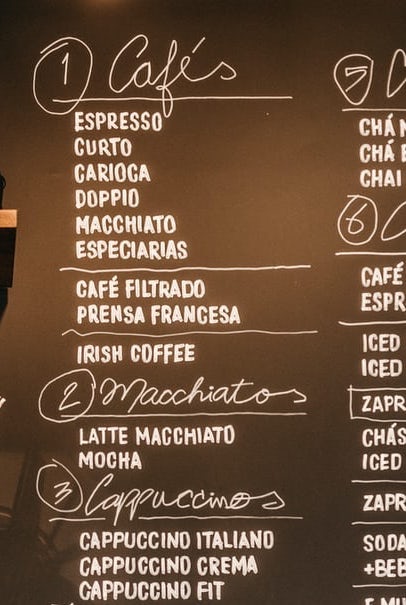 1 Cafés
ESPRESSO
CURTO
CARIOCA
DOPPIO
MACCHIATO
ESPECIARIAS
CAFÉ FILTRADO
PRENSA FRANCESA
IRISH COFFEE
2 Macchiatos
LATTE MACCHIATO
MOCHA
3 Cappuccinos
CAPPUCCINO ITALIANO
CAPPUCCINO CREMA
CAPPUCCINO FIT
5 C
CHÁ
CHÁ
CHAI
6
CAFÉ
ESPR
ICED
ICED
ZAPR
CHÁS
ICED
ZAPR
SODA
+BEB